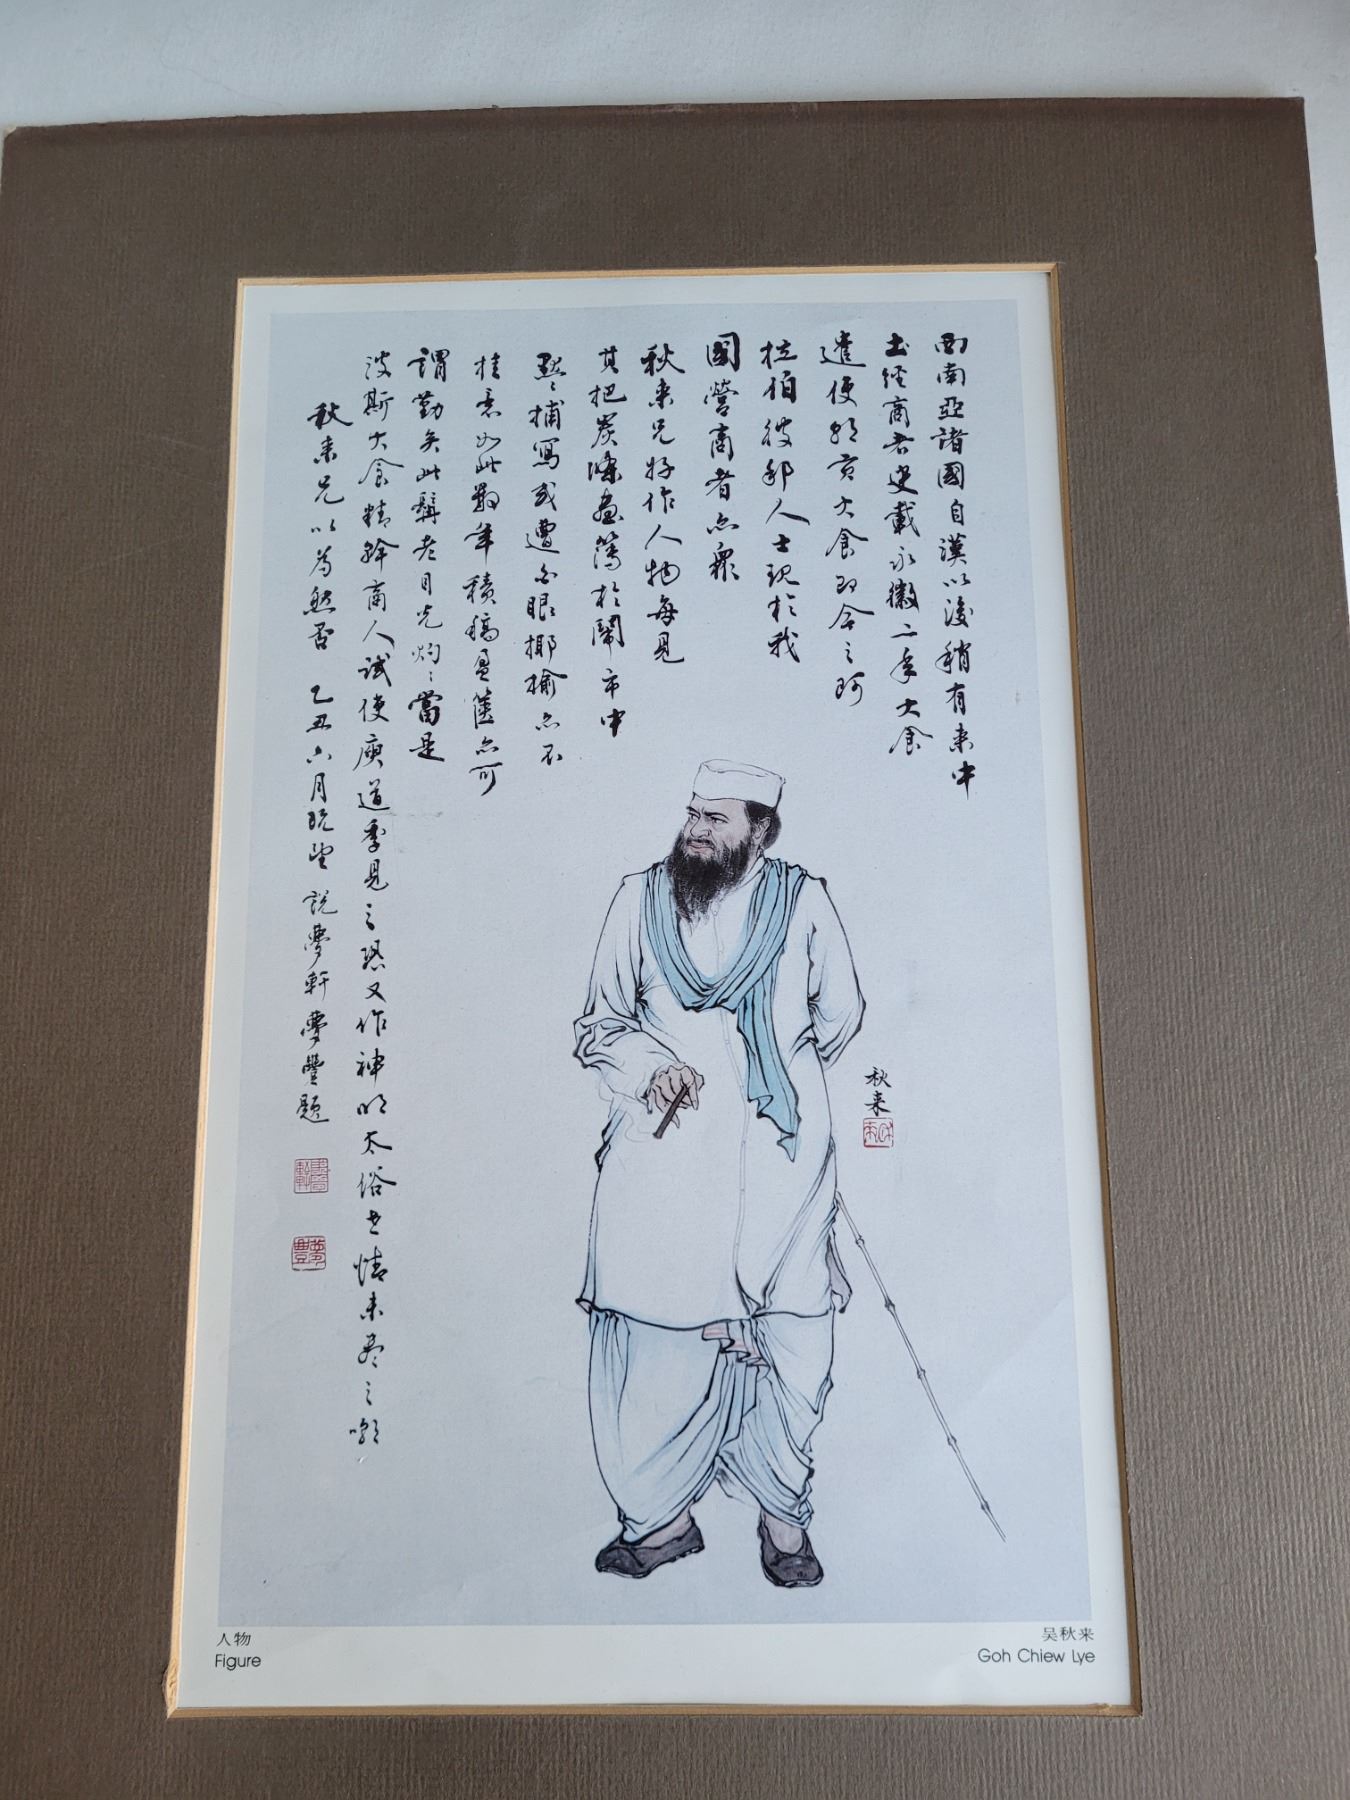 西南亞諸國自漢以後稍有来中
土經商者史載永徽二年大食
遣使朝貢大食即今之阿
拉伯彼邦人士現於我
國營商者亦衆
秋来兄好作人物每見
其把炭條畫簿於鬧市中
默默捕寫或遭白眼揶揄亦不
挂意如此數年積稿盈篋亦可
謂勤矣此髯老目光灼灼當是
波斯大食精幹商人試使庾道季見之恐又作神明太俗世情未盡之嘲
秋来兄以為然否 乙丑六月既望 説夢軒 夢豐題
秋来
人物
Figure
吴秋来
Goh Chiew Lye